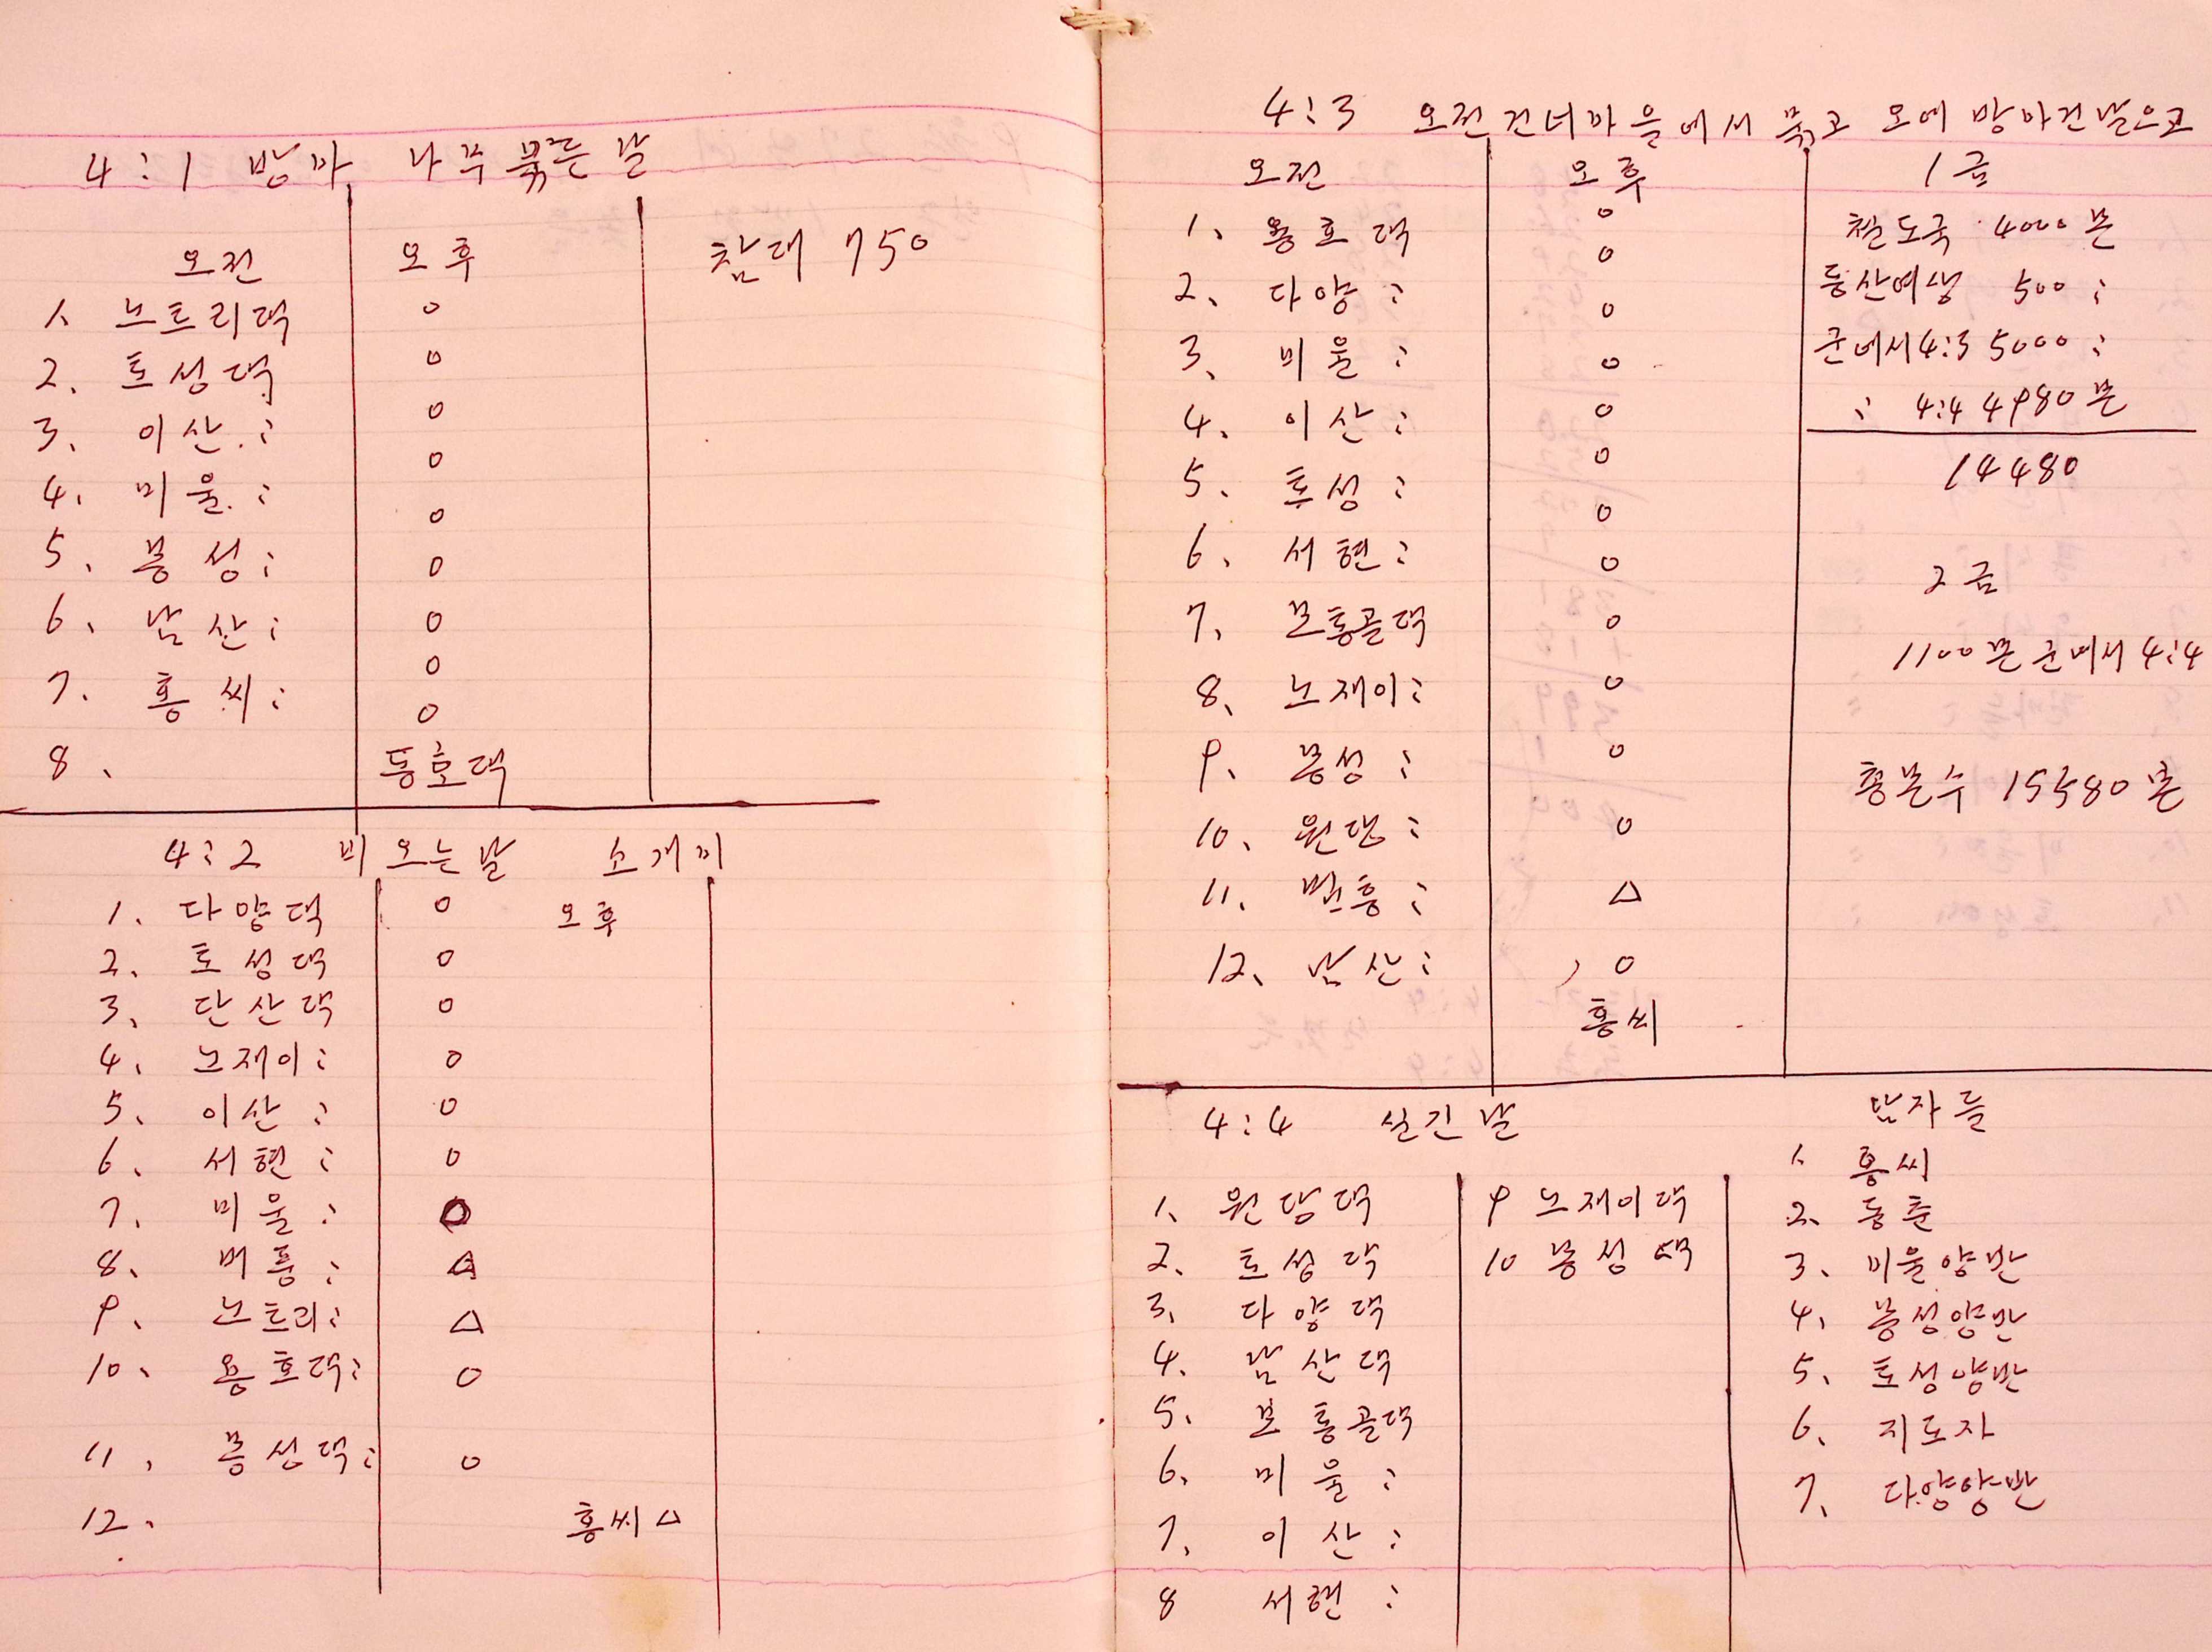 4:1 방마 나무 묶은 날
오전 오후 참대 750
1. 노트리댁 o
2. 토성댁 o
3. 이산 : o
4. 미울 : o
5. 봉성 : o
6. 남산 : o
7. 홍씨 : o
o
o
8. 동호댁
4:2 비 오는날 소개미
1. 다양댁 o 오후
2. 토성댁 o
3. 단산댁 o
4. 노재이 : o
5. 이산 : o
6. 서현 : o
7. 미울 : o
8. △
9. 노트리 : △
10. 용호댁 : o
11. 봉성댁 : o
12. 홍씨 △
4:3 오전 건너마을에서 묶고 오에 방마건날으로
오전 오후 1급
o
1. 용호댁 o 철도국 4000본
2. 다양 : o 동산여상 500 :
3. 미울 : o 군에서 4:3 5000 :
4. 이산 : o : 4:4 4980본
5. 토성 : o 14480
o
6. 서현 : o 2급
7. 보통골댁 o 1100본 군에서 4:4
8. 노재이 : o
9. 봉성 : o 총본수 15580본
10. 원담 : o
11. : △
12. 남산 : o
홍씨
4:4 실긴날 남자들
1. 원담댁 9 노재이댁 1. 홍씨
2. 토성댁 10 봉성댁 2. 동춘
3. 다양댁 3. 미울양반
4. 남산댁 4. 봉성양반
5. 보통골댁 5. 토성양반
6. 미울 : 6. 지도자
7. 이산 : 7. 다양양반
8 서현 :